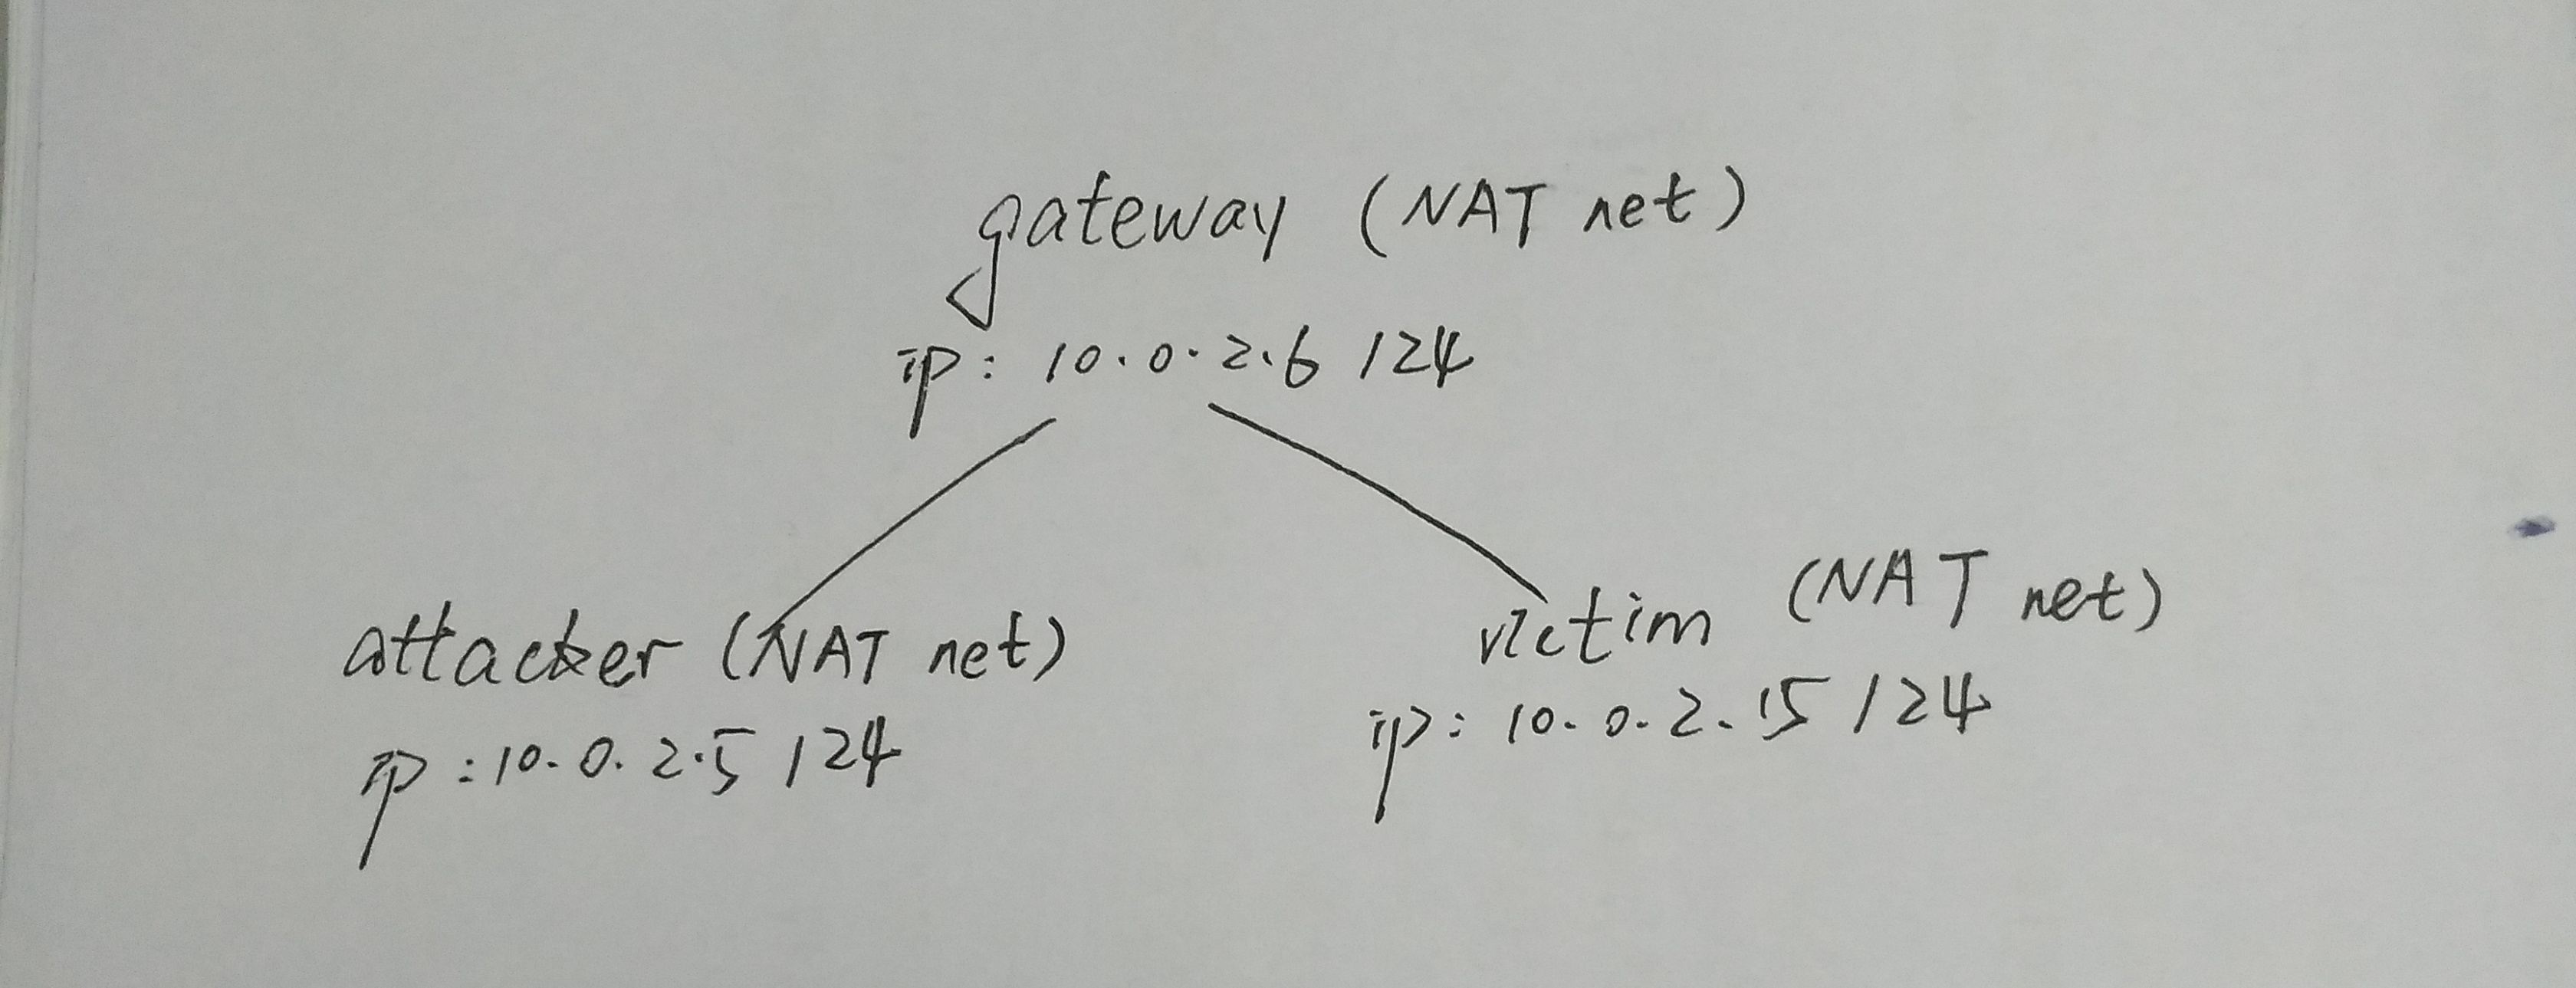 gateway (NAT net)
ip: 10.0.2.6 /24
attacker (NAT net)
ip:10.0.2.5 /24
victim (NAT net)
ip: 10.0.2.15 /24